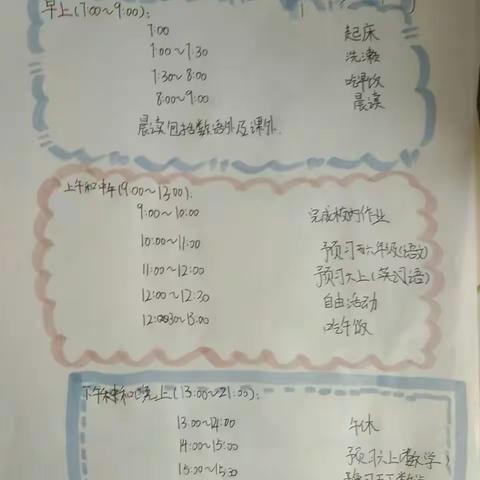 早上(7:00~9:00):
7:00 起床
7:00~7:30 洗漱
7:30~8:00 吃早饭
8:00~9:00 晨读
晨读包括数语外及课外.
上午和中午(9:00~13:00):
9:00~10:00 完成校内作业
10:00~11:00 预习六年级(语文)
11:00~12:00 预习六上(英语)
12:00~12:30 自由活动
12:30~13:00 吃午饭
下午和晚上(13:00~21:00):
13:00~14:00 午休
14:00~15:00 预习六上(数学)
15:00~15:30